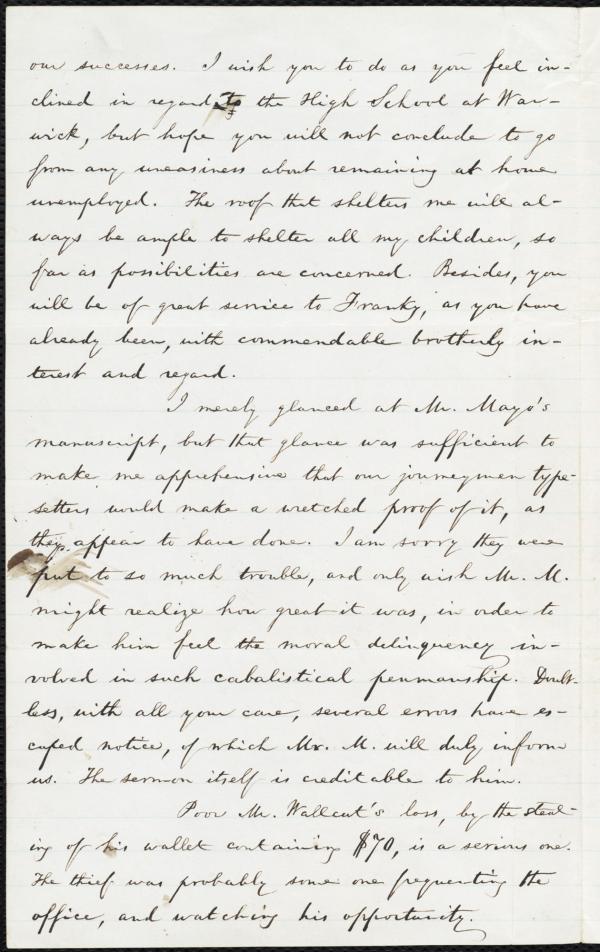 our successes. I wish you to do as you feel in-
clined in regard to the High School at War-
wick, but hope you will not conclude to go
from any uneasiness about remaining at home
unemployed. The roof that shelters me will al-
ways be ample to shelter all my children, so
far as possibilities are concerned. Besides, you
will be of great service to Franky, as you have
already been, with commendable brotherly in-
terest and regard.
I merely glanced at Mr. Mayo's
manuscript, but that glance was sufficient to
make me apprehensive that our journeymen type-
setters would make a wretched proof of it, as
they appear to have done. I am sorry they were
put to so much trouble, and only wish Mr. M.
might realize how great it was, in order to
make him feel the moral delinquency in-
volved in such cabalistical penmanship. Doubt-
less, with all your care, several errors have es-
caped notice, of which Mr. M. will duly inform
us. The sermon itself is creditable to him.
Poor Mr. Wallcut's loss, by the steal-
ing of his wallet containing $70, is a serious one.
The thief was probably some one frequenting the
office, and watching his opportunity.